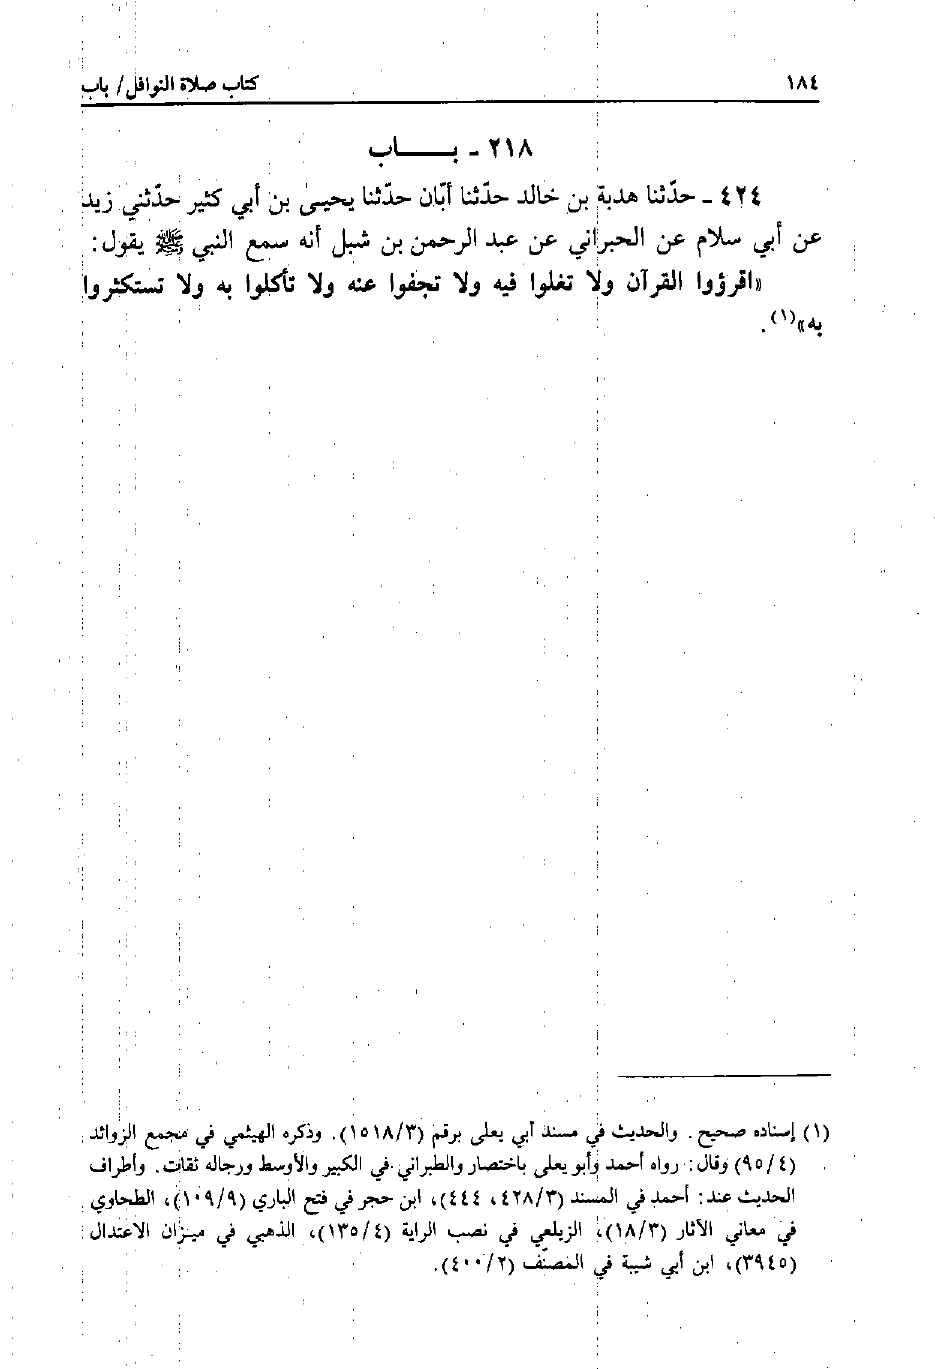 ١٨٤ كتاب صلاة النوافل / باب
٢١٨ - بـــــاب
٤٢٤ - حدّثنا هدبة بن خالد حدّثنا أبّان حدّثنا يحيىٰ بن أبي كثير حدّثني زيد
عن أبي سلام عن الحبراني عن عبد الرحمن بن شبل أنه سمع النبي ﷺ يقول:
«اقرؤوا القرآن ولا تغلوا فيه ولا تجفوا عنه ولا تأكلوا به ولا تستكثروا
به»(١).
(١) إسناده صحيح. والحديث في مسند أبي يعلى برقم (١٥١٨/٣). وذكره الهيثمي في مجمع الزوائد
(٩٥/٤) وقال: رواه أحمد وأبو يعلى باختصار والطبراني في الكبير والأوسط ورجاله ثقات. وأطراف
الحديث عند: أحمد في المسند (٤٢٨/٣، ٤٤٤)، ابن حجر في فتح الباري (١٠٩/٩)، الطحاوي
في معاني الآثار (١٨/٣)، الزيلعي في نصب الراية (١٣٥/٤)، الذهبي في ميزان الاعتدال
(٣٩٤٥)، ابن أبي شيبة في المصنّف (٤٠٠/٢).